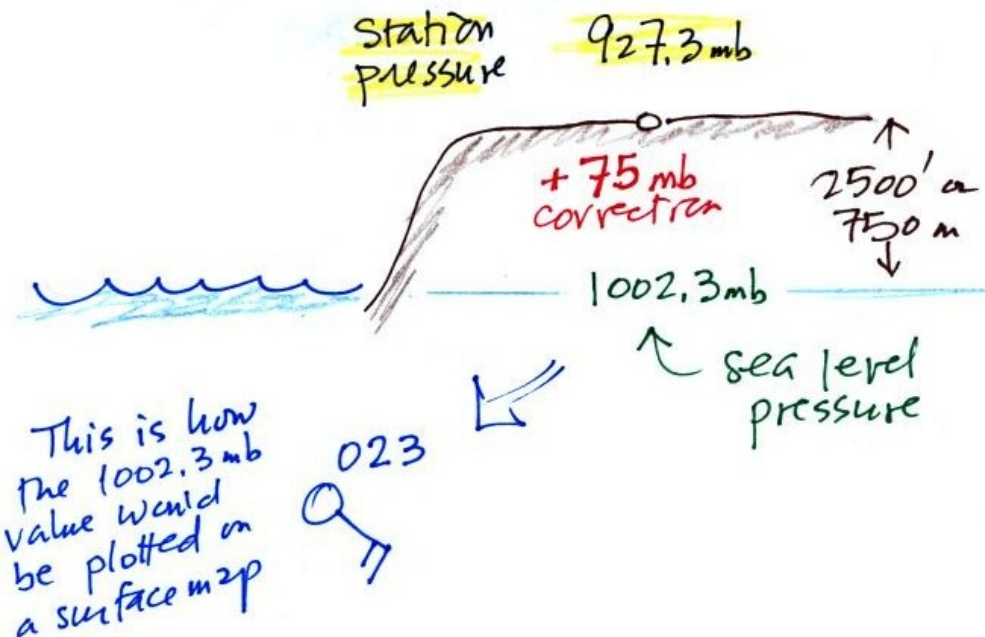 Station 927.3 mb
pressure
+75 mb
correction
2500' or
750 m
1002.3mb
sea level
pressure
This is how
the 1002.3 mb
value would
be plotted on
a surface map
023